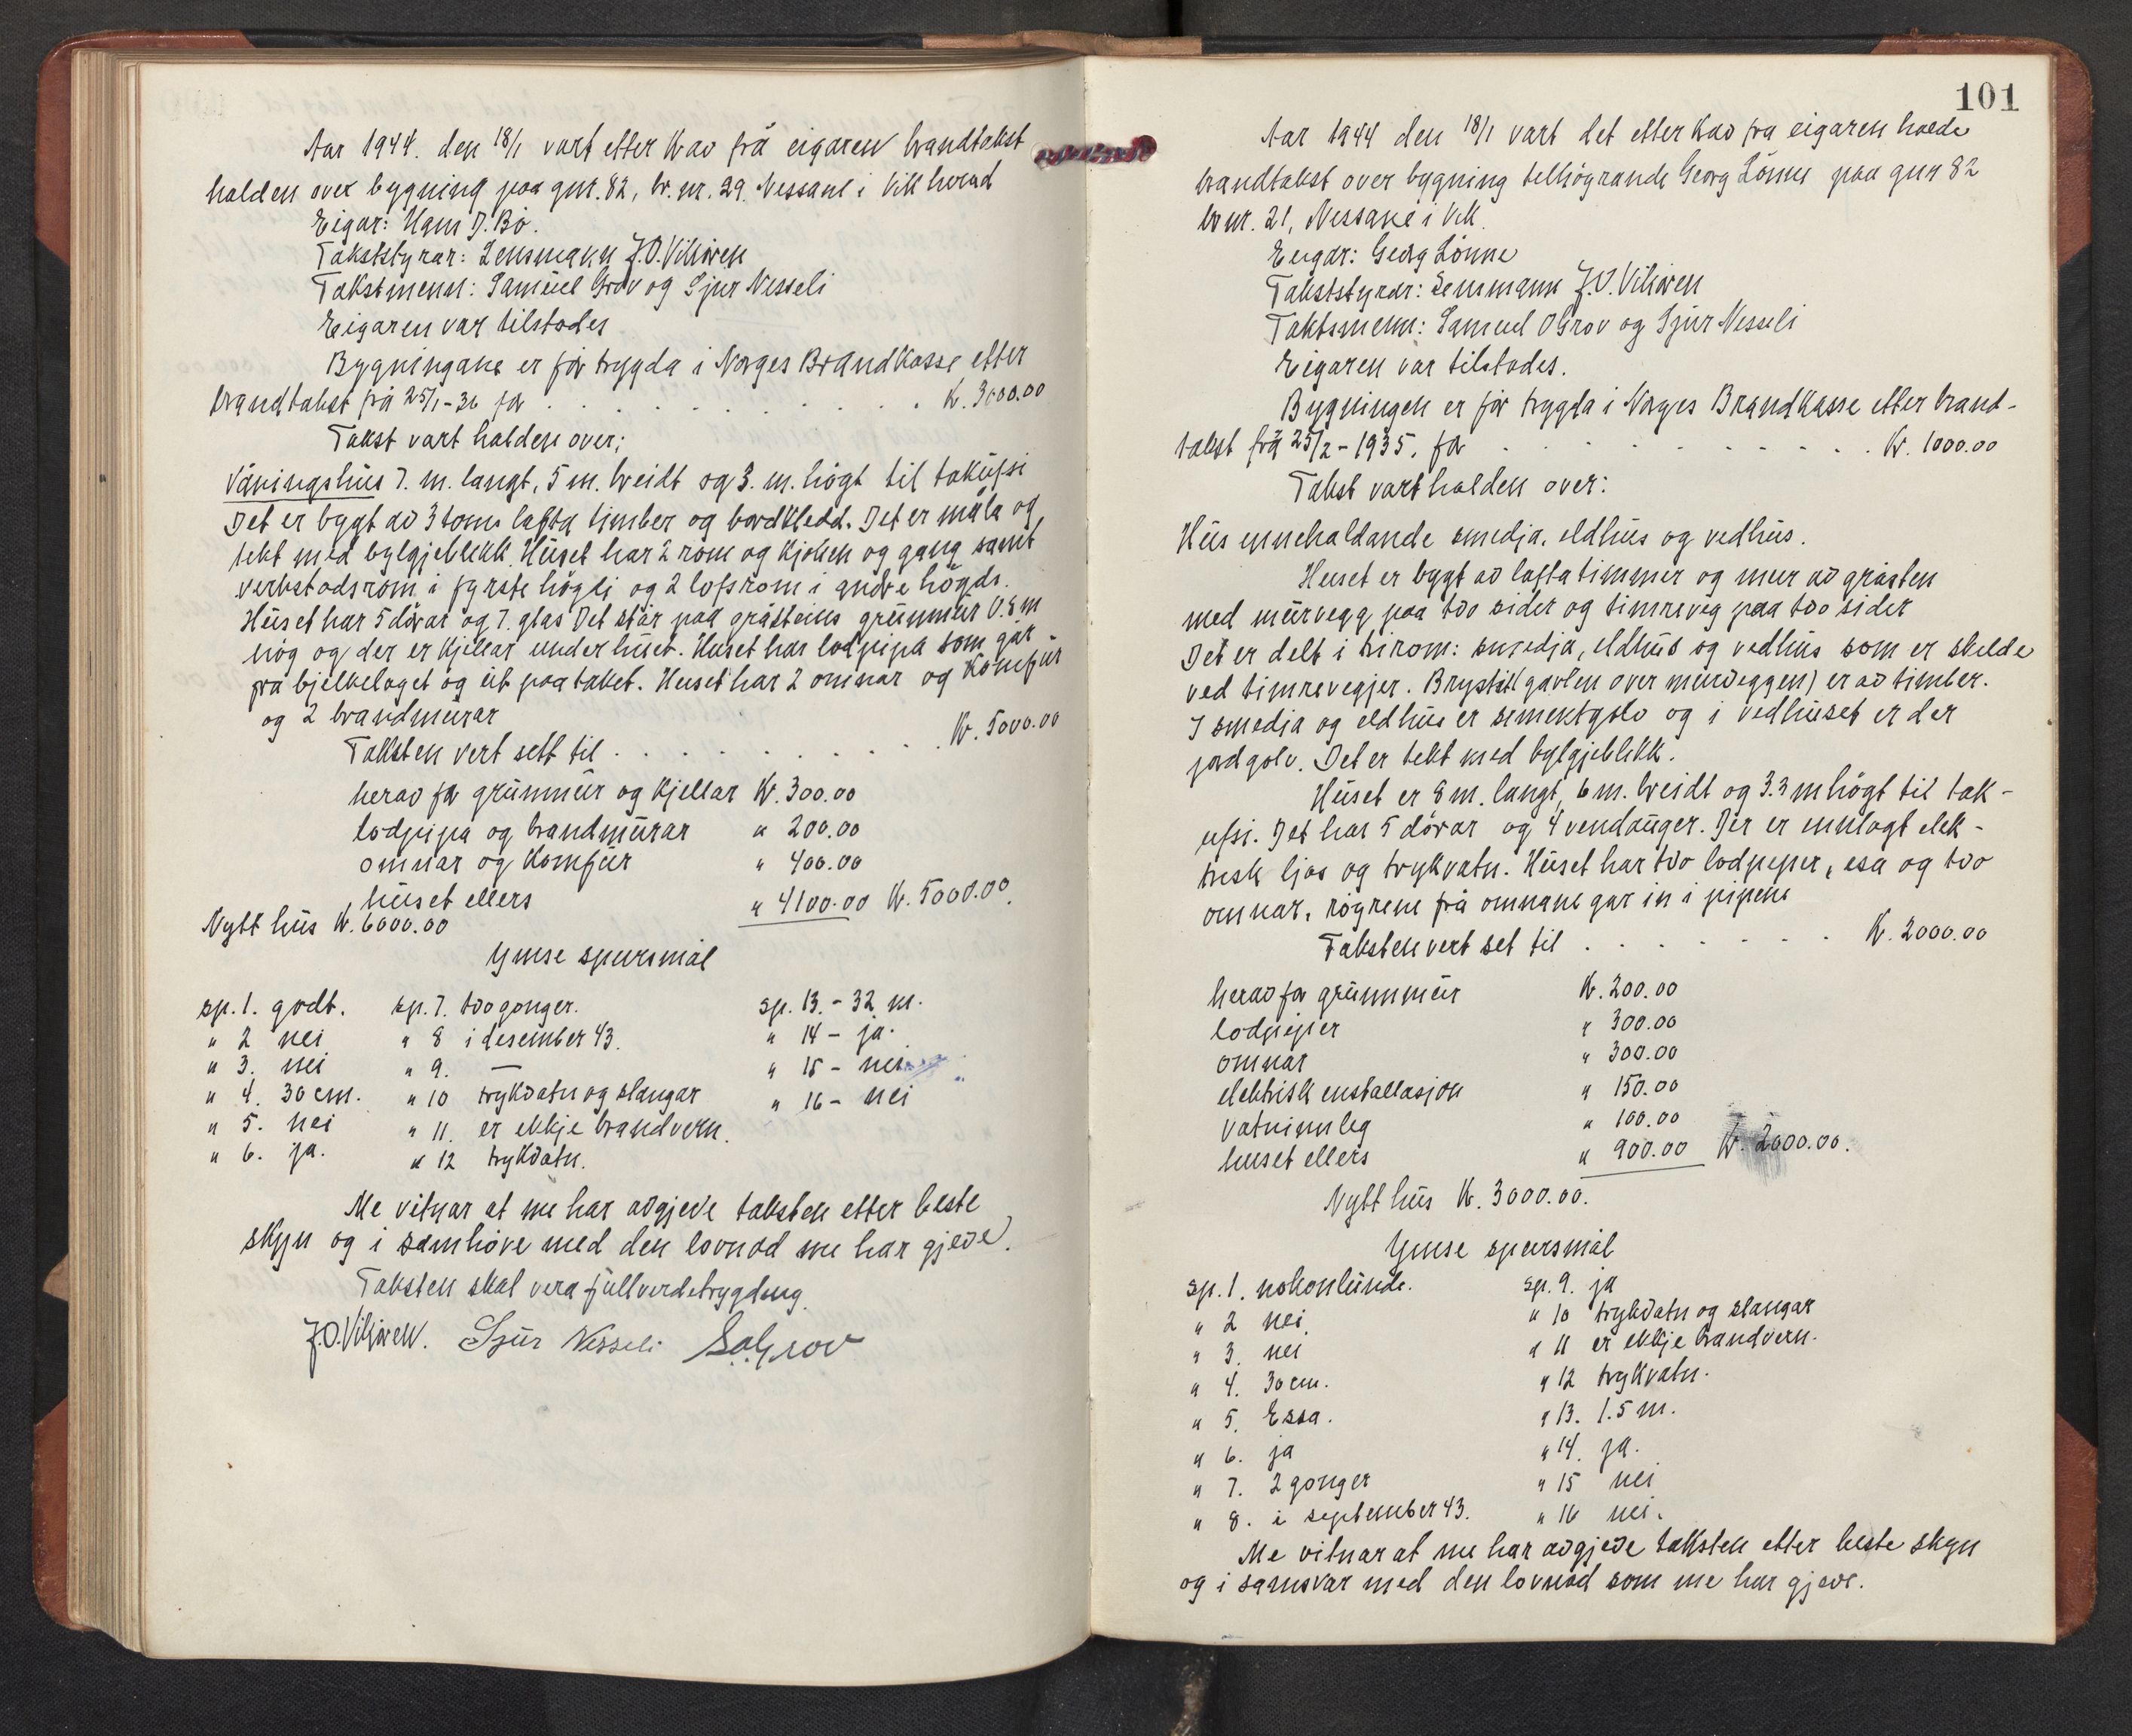 Aar 1944. den 18/1 vart etter krav frå eigaren brandtakst
halden over bygning paa gnr. 82, br. nr. 29. Nessane i Vik herad
Eigar: Hans J. Bø.
Takststyrar: Lensmann J.O. Viksøren
Takstmenn: Samuel Grov og Sjur Nesseli
Eigaren var tilstades
Bygningane er før trygda i Norges Brandkasse etter
brandtakst frå 25/1-36 for . . . . . . . . . . Kr. 3000.00
Takst vart halden over:
Våningshus 7. m. langt, 5 m. breidt og 3. m. högt til takufsi
Det er bygt av 3 toms lafta timber og bordkledd. Det er måla og
tekt med bylgjeblekk. Huset har 2 rom og kjøken og gang samt
verkstadsrom i fyrste högdi og 2 lofsrom i andre högdi.
Huset har 5 dörar og 7. glas Det står paa gråsteins grunnmur 0.8 m
hög og der er kjellar under huset. Huset har lodpipa som går
fra bjelkelaget og ut paa taket. Huset har 2 omnar og komfur
og 2 brandmurar
Taksten vert sett til . . . . . . . . . . Kr. 5000.00
herav for grunnmur og kjellar Kr. 300.00
lodpipa og brandmurar " 200.00
omnar og komfur " 400.00
huset ellers " 4100.00 Kr. 5000.00.
Nytt hus Kr. 6000.00
Ymse spursmål
sp. 1. godt. sp. 7. tvo gonger. sp. 13. - 32 m.
" 2 nei " 8 i desember 43. " 14 - ja.
" 3. nei " 9. — " 15 - nei
" 4. 30 cm. " 10 trykvatn og slangar " 16 - nei
" 5. nei " 11. er ekkje brandvern.
" 6. ja. " 12 trykvatn.
Me vitnar at me har avgjeve taksten etter beste
skjyn og i samhøve med den lovnad me har gjeve.
Taksten skal vera fullverdetrygding.
J.O. Viksøren. Sjur Nesseli S.O. Grov
101
Aar 1944 den 18/1 vart det etter krav fra eigaren halde
brandtakst over bygning tilhögrande Georg Lönne paa gnr 82
br nr. 21, Nessane i Vik.
Eigar: Georg Lönne
Takststyrar: Lensmann J.O. Viksøren
Taktsmenn: Samuel O Grov og Sjur Nesseli
Eigaren var tilstades.
Bygningen er før trygda i Norges Brandkasse etter brand-
takst frå 25/2-1935. for . . . . . . . . . . Kr. 1000.00
Takst vart halden over:
Hus innehaldande smedja, eldhus og vedhus.
Huset er bygt av lafta timmer og mur av gråsten
med murvegg paa tvo sider og timreveg paa tvo sider
Det er delt i tri rom: smedja, eldhus og vedhus som er skelde
ved timrevegjer. Brystit (gavlen over murveggen) er av timber.
I smedja og eldhus er sementgolv og i vedhuset er der
jordgolv. Det er tekt med bylgjeblekk.
Huset er 8 m. langt, 6 m. breidt og 3.3 m högt til tak-
ufsi. Det har 5 dörar og 4 vendauger. Der er innlagt elek-
trisk ljos og trykvatn. Huset har tvo lodpiper, esa og tvo
omnar, rögrene frå omnane gar in i pipene
Taksten vert set til . . . . . . . Kr. 2000.00
herav for grunnmur Kr. 200.00
lodpiper " 300.00
omnar " 300.00
elektrisk installasjon " 150.00
vatninnleg " 100.00
huset ellers " 900.00 Kr. 2000.00.
Nytt hus Kr. 3000.00.
Ymse spursmål
sp. 1. nokonlunde. sp. 9. ja
" 2 nei " 10 trykvatn og slangar
" 3. nei " 11 er ekkje brandvern.
" 4. 30 cm. " 12 trykvatn.
" 5. Essa. " 13. 1.5 m.
" 6. ja " 14. ja.
" 7. 2 gonger " 15 nei
" 8. i september 43. " 16 nei.
Me vitnar at me har avgjeve taksten etter beste skyn
og i samsvar med den lovnad som me har gjeve.